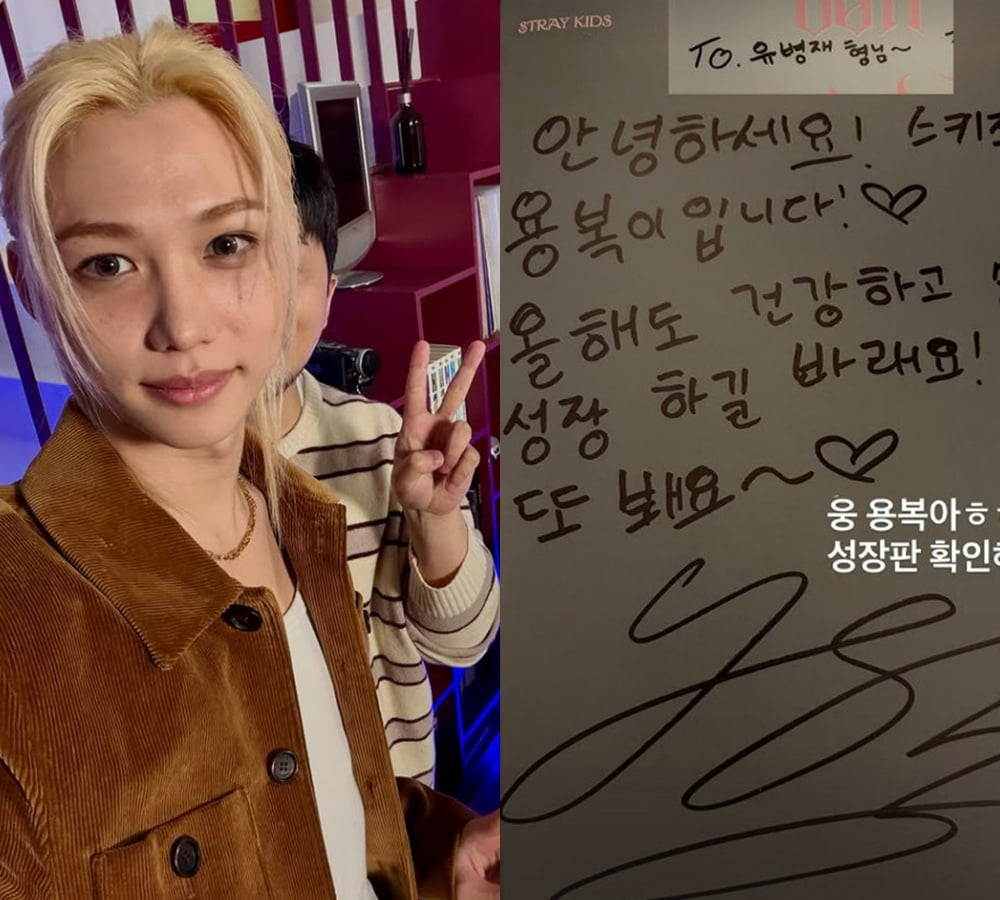 STRAY KIDS
TO. 유병재 형님~
안녕하세요! 스키즈
용복이 입니다! ♡
올해도 건강하고
성장 하길 바래요!
또 봬요~♡
웅 용복아ㅎ
성장판 확인